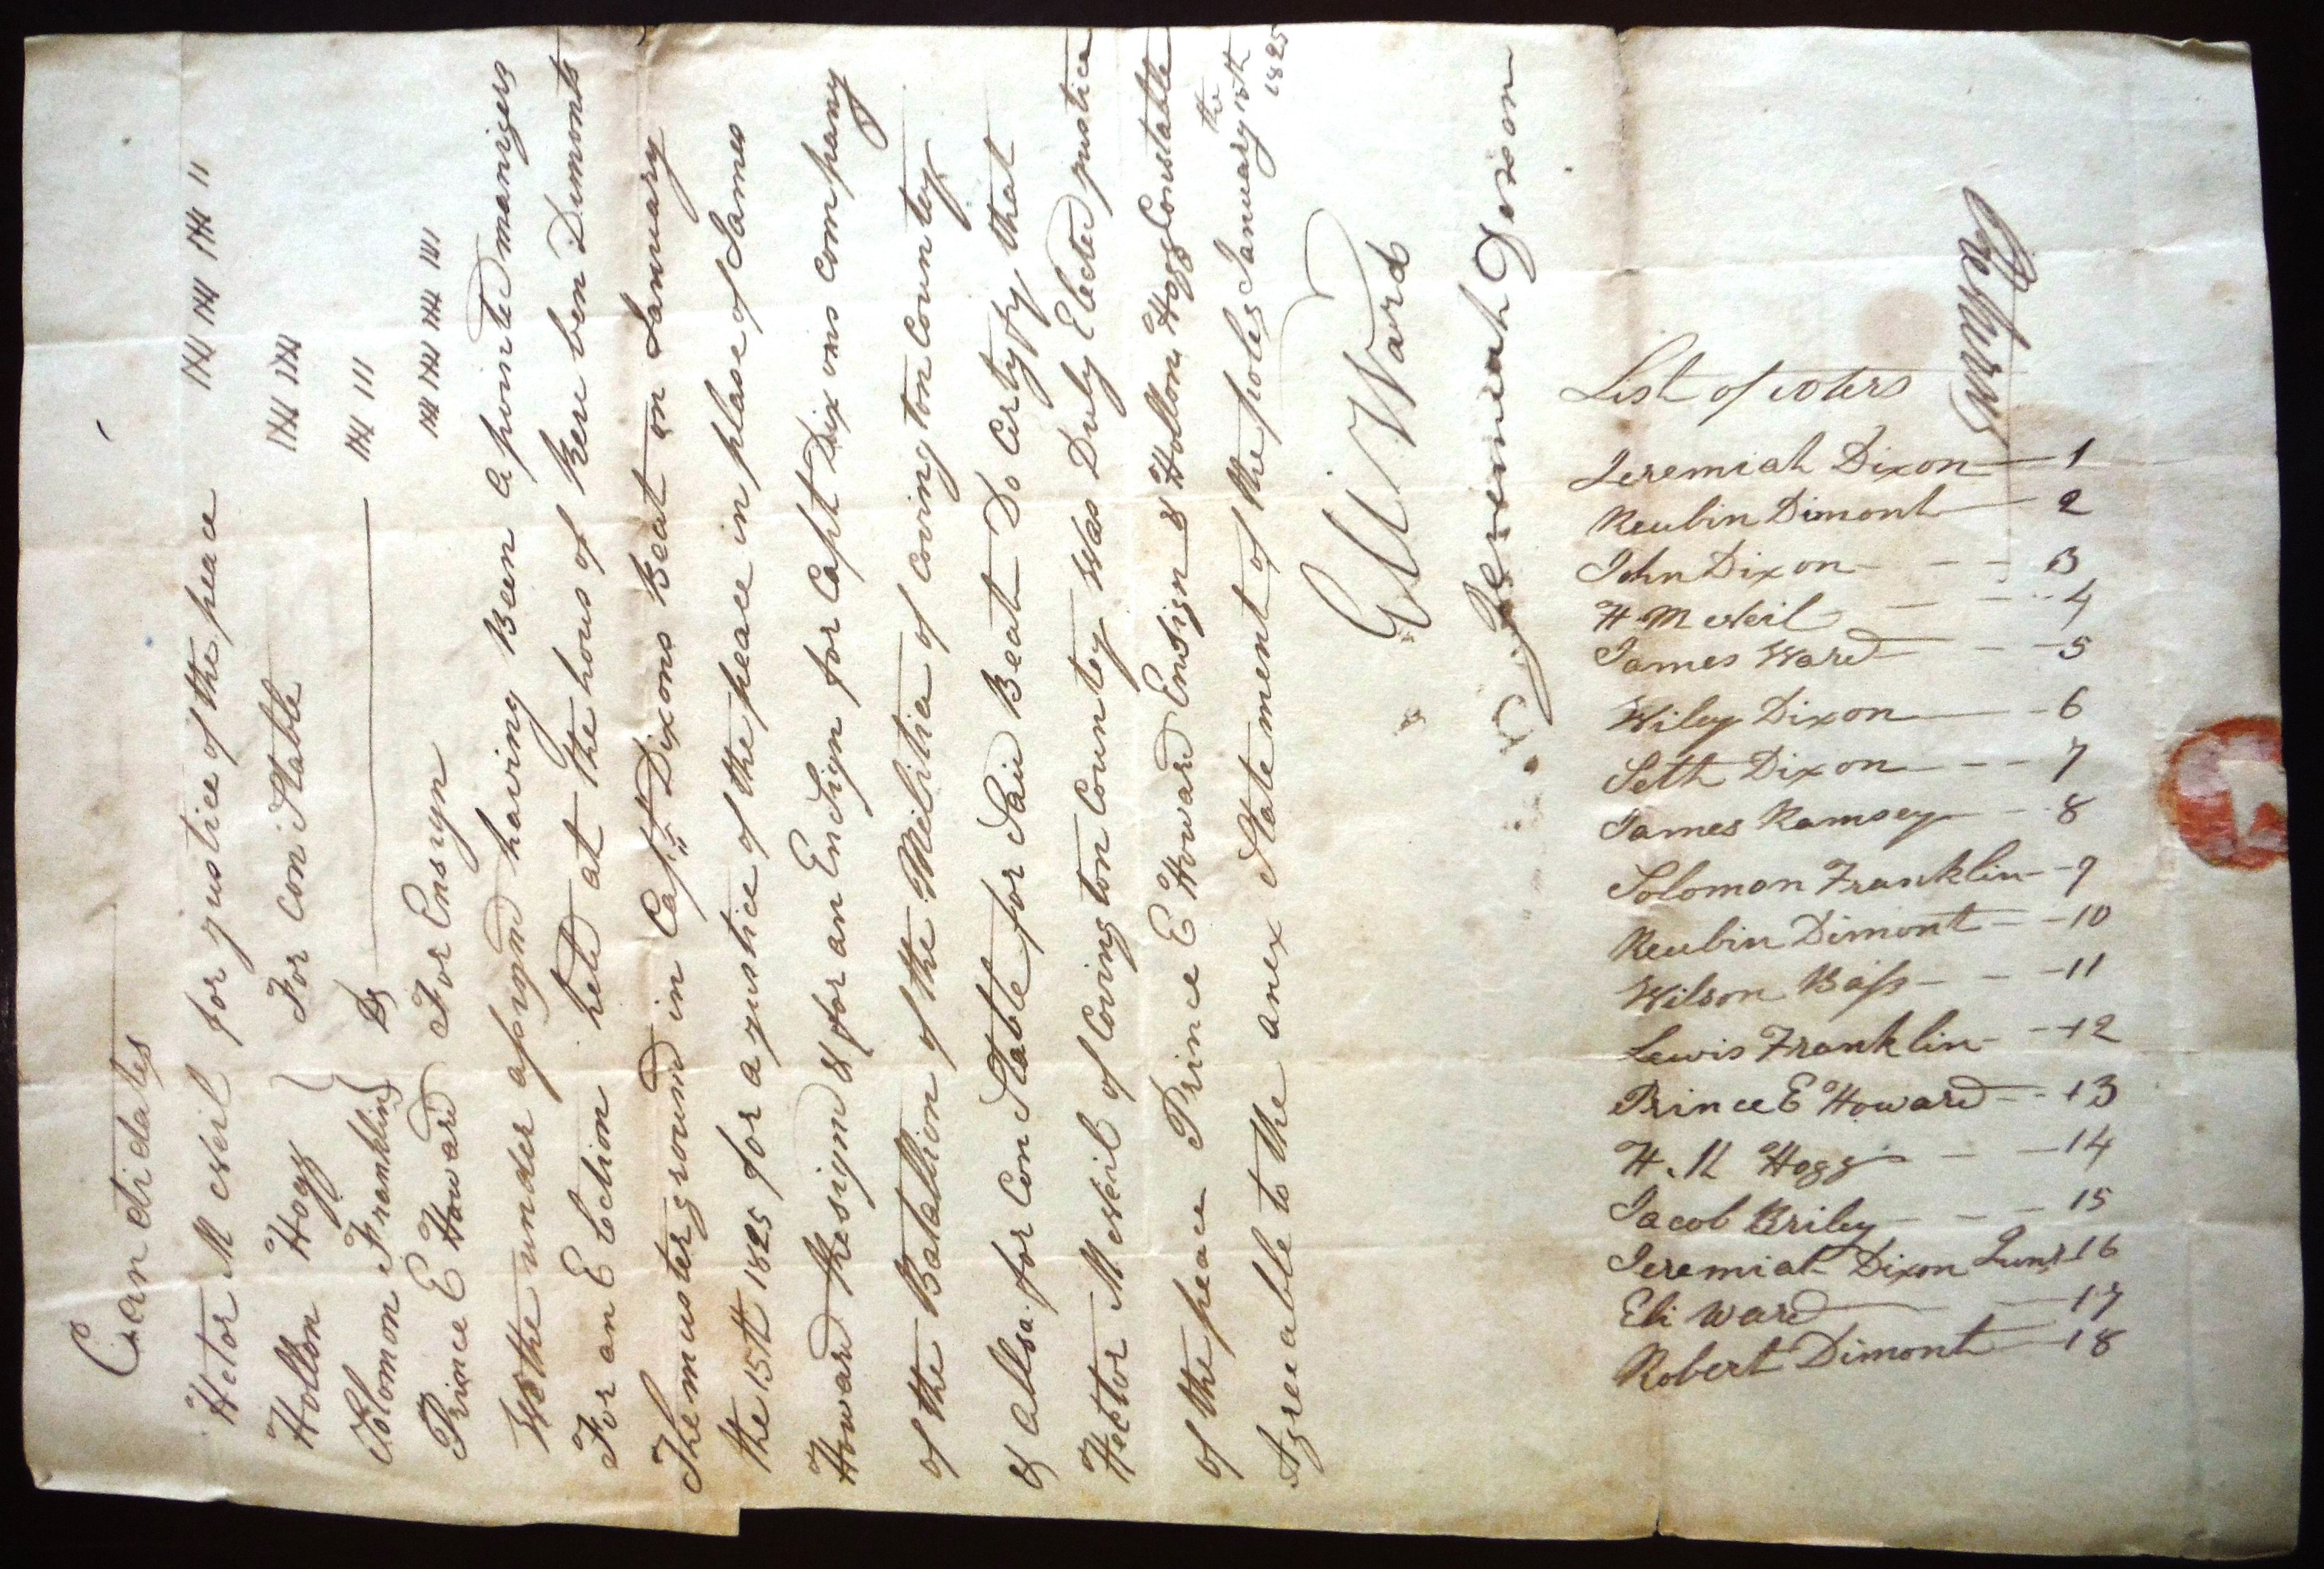 Candidates
Hector McNeil for justice of the peace 𝍸 𝍸 𝍸 𝍸 11
Hollon Hogg } For Con Stable 𝍸 𝍸
Solomon Franklin } Do 𝍸 111
Prince E Howard For Ensign 𝍸 𝍸 𝍸 𝍸 1111
We the under asignd having Been apointed manigers
For an Election held at the hous of Reuben Dimonts
The muster ground in Capt Dixons Beat on January
the 15th 1825 for a justice of the peace in place of James
Howard Resignd & for an EnSign for Capt Dixons company
of the Batallion of the Militia of Covington County
& allso for Con Stable for Said Beat Do Certyfy that
Hector McNeil of Covington County Was Duly Elected justice
of the peace Prince E Howard Ensign & Hollon Hogg Constable
Agreeable to the anex Statement of the poles January the 15th
1825
Eli Ward
Jeremiah Dixon
List of voters
Jeremiah Dixon 1
Reubin Dimont 2
John Dixon 3
H McNeil 4
James Ward 5
Wiley Dixon 6
Seth Dixon 7
James Ramsey 8
Solomon Franklin 9
Reubin Dimont 10
Wilson Bass 11
Lewis Franklin 12
Prince E Howard 13
H. H Hogg 14
Jacob Briley 15
Jeremiah Dixon Junr 16
Eli Ward 17
Robert Dimont 18
Returns